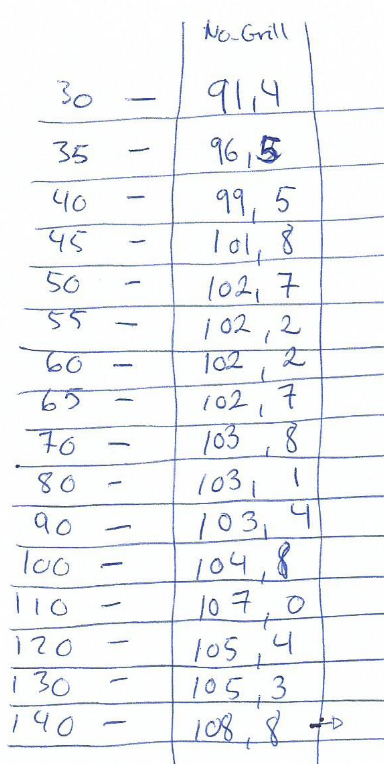 No-Grill
30 - 91,4
35 - 96,5
40 - 99,5
45 - 101,8
50 - 102,7
55 - 102,2
60 - 102,2
65 - 102,7
70 - 103,8
80 - 103,1
90 - 103,4
100 - 104,8
110 - 107,0
120 - 105,4
130 - 105,3
140 - 108,8 →